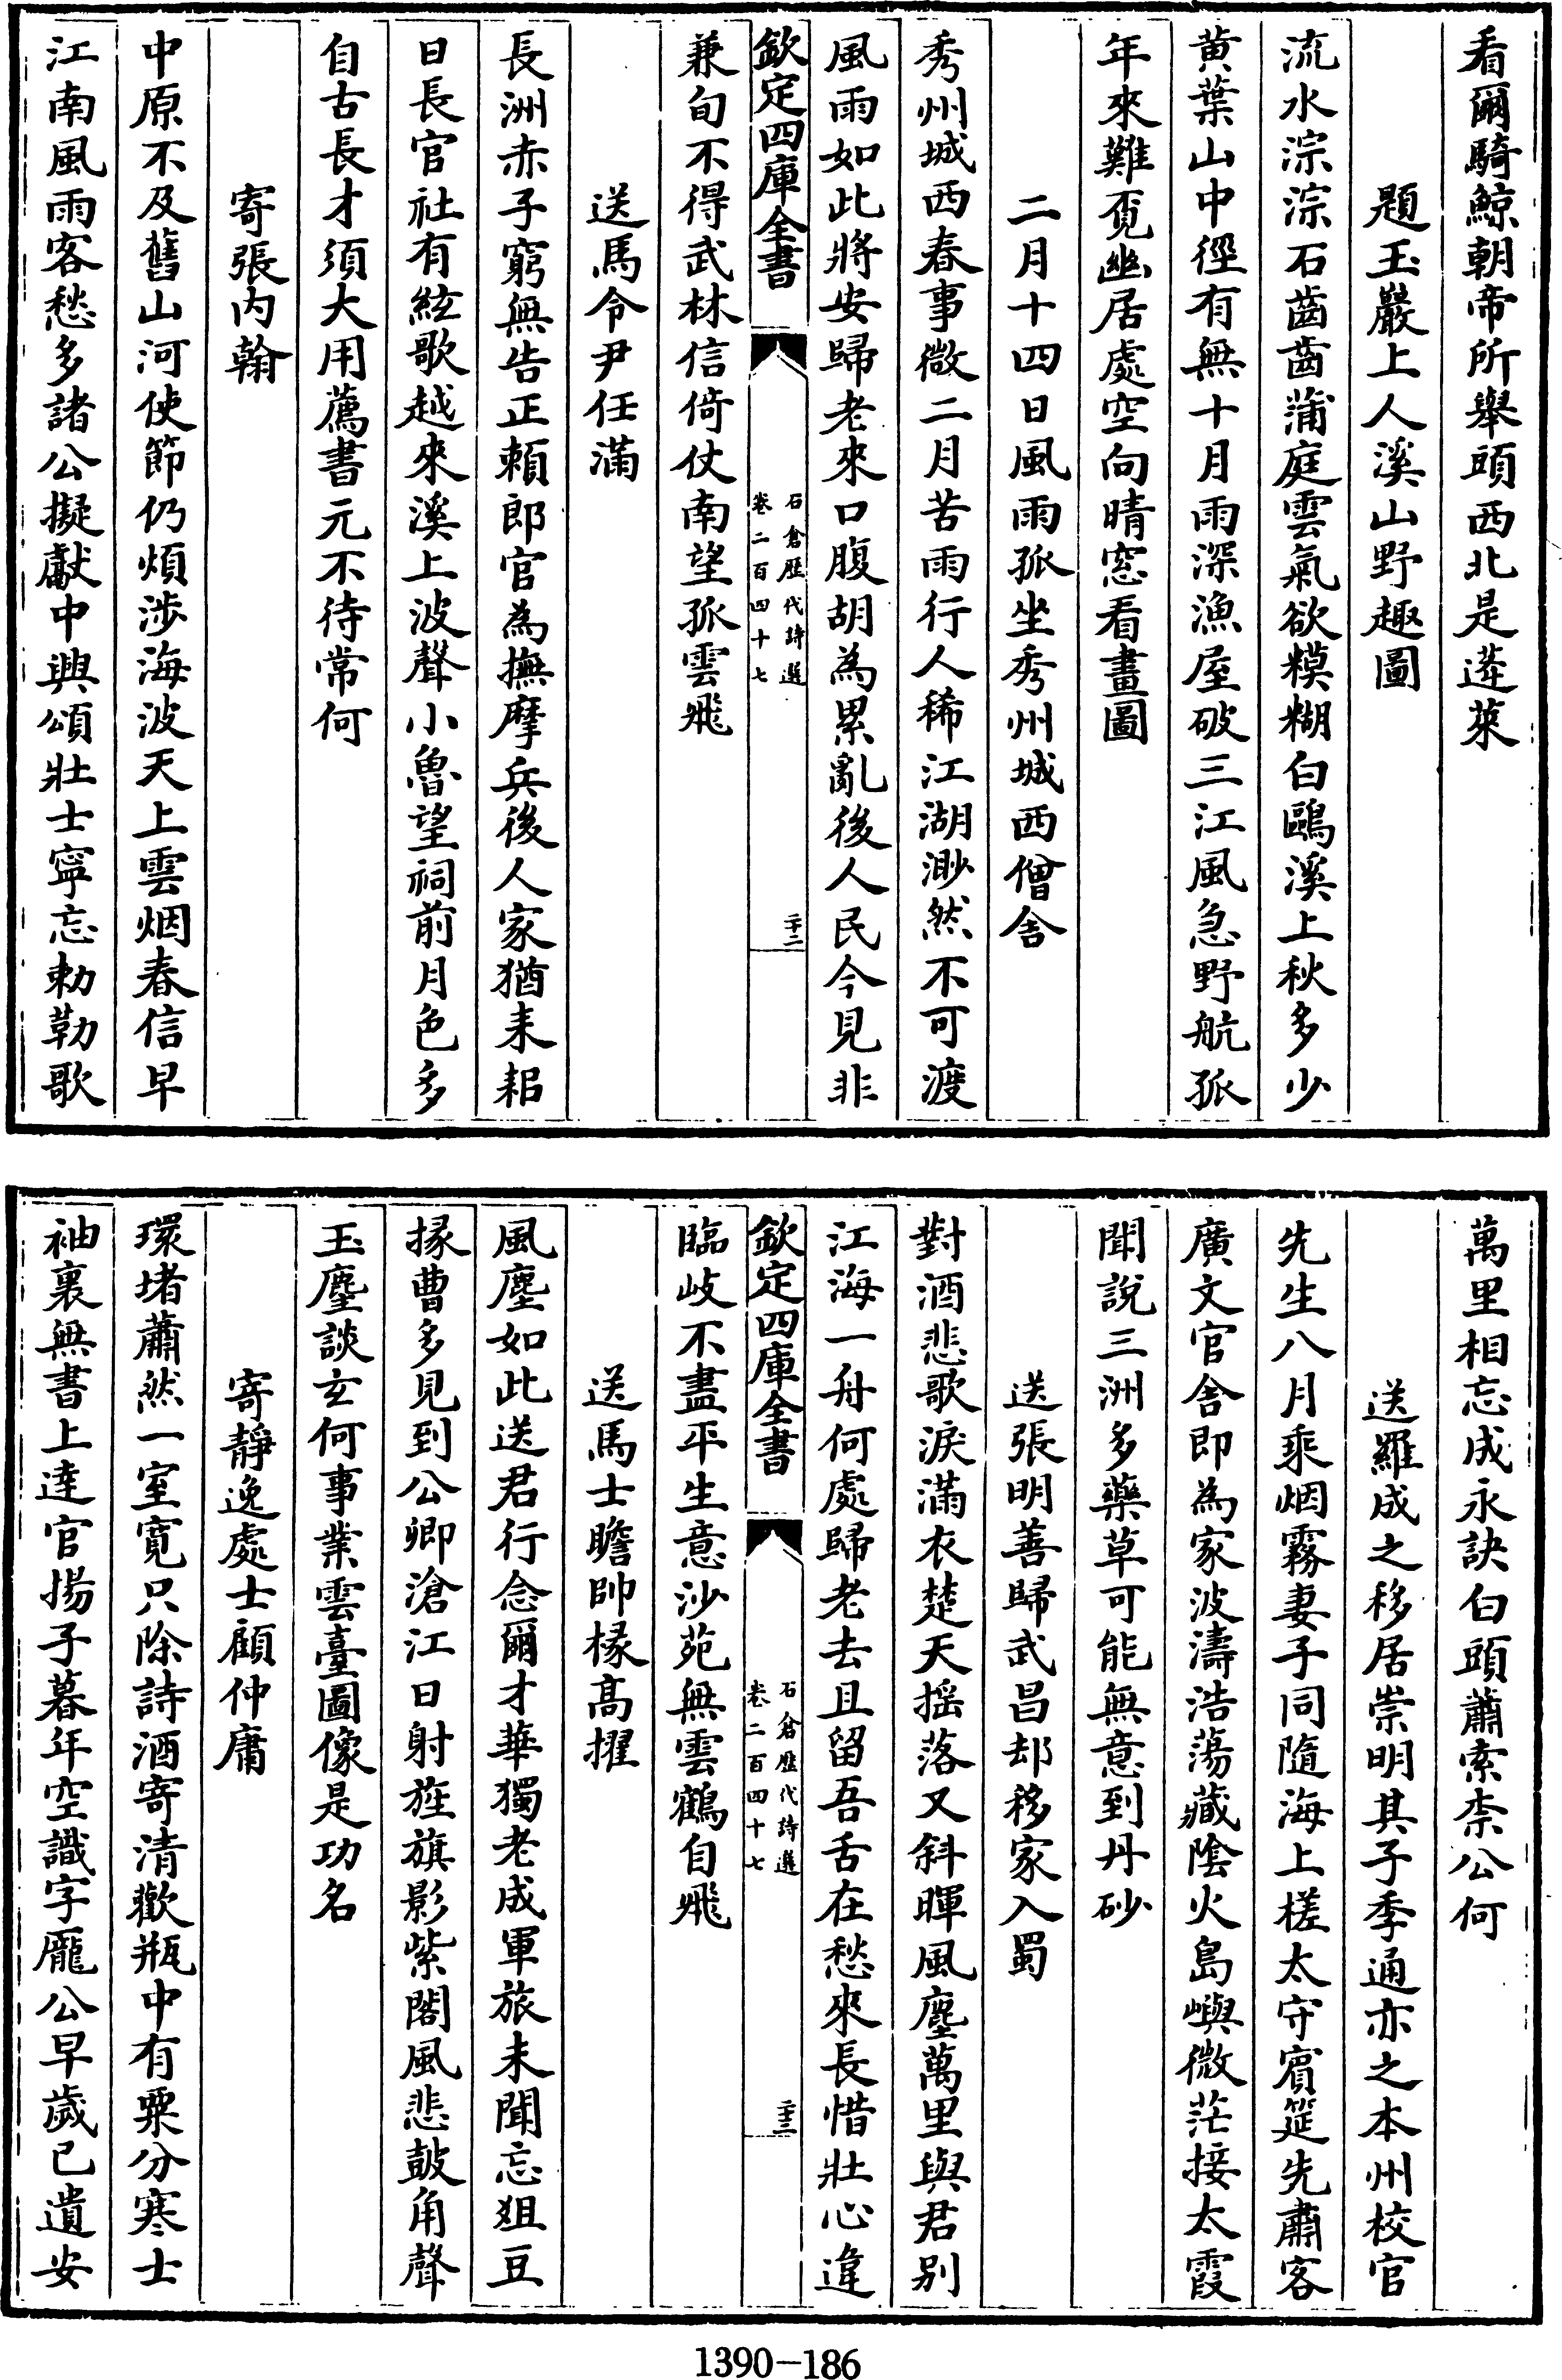 看爾騎鯨朝帝所舉頭西北是蓬萊
題玉巖上人溪山野趣圖
流水淙淙石齒齒蒲庭雲氣欲糢糊白鷗溪上秋多少
黄葉山中徑有無十月雨深漁屋破三江風急野航孤
年來難覔幽居處空向晴窓看畫圖
二月十四日風雨孤坐秀州城西僧舍
秀州城西春事微二月苦雨行人稀江湖渺然不可渡
風雨如此將安歸老來口腹胡為累亂後人民今見非
欽定四庫全書
石倉歷代詩選
卷二百四十七
二十二
兼旬不得武林信倚仗南望孤雲飛
送馬令尹任滿
長洲赤子窮無告正頼郎官為撫摩兵後人家猶耒耜
日長官社有絃歌越來溪上波聲小魯望祠前月色多
自古長才須大用薦書元不待常何
寄張内翰
中原不及舊山河使節仍煩渉海波天上雲烟春信早
江南風雨客愁多諸公擬獻中興頌壯士寧忘勅勒歌
萬里相忘成永訣白頭蕭索柰公何
送羅成之移居崇明其子季通亦之本州校官
先生八月乘烟霧妻子同隨海上槎太守賔筵先肅客
廣文官舍即為家波濤浩蕩藏陰火島嶼微茫接太霞
聞說三洲多藥草可能無意到丹砂
送張明善歸武昌却移家入蜀
對酒悲歌淚滿衣楚天揺落又斜暉風塵萬里與君别
江海一舟何處歸老去且留吾舌在愁來長惜壯心違
欽定四庫全書
石倉歷代詩選
卷二百四十七
二十三
臨岐不盡平生意沙苑無雲鶴自飛
送馬士瞻帥椽髙擢
風塵如此送君行念爾才華獨老成軍旅未聞忘俎豆
掾曹多見到公卿滄江日射旌旗影紫閣風悲鼓角聲
玉麈談玄何事業雲臺圖像是功名
寄靜逸處士顧仲庸
環堵蕭然一室寛只除詩酒寄清歡瓶中有粟分寒士
袖裏無書上達官揚子暮年空識字龎公早歲已遺安
1390-186